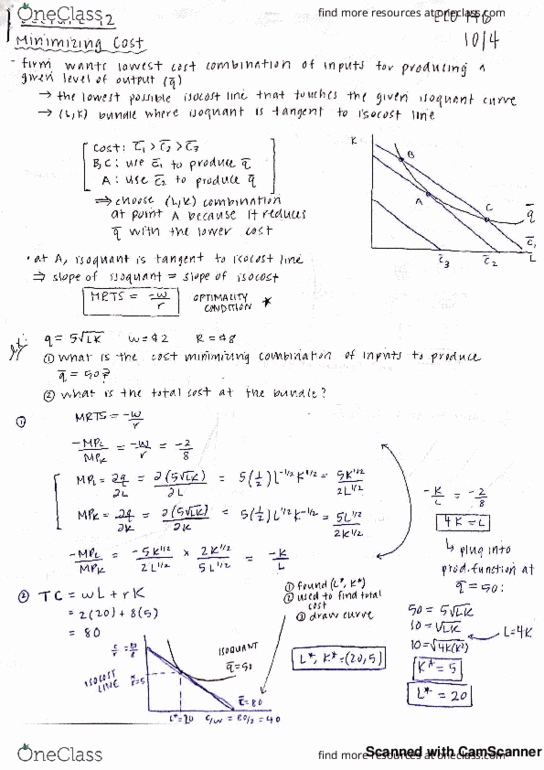 OneClass
find more resources at oneclass.com
12
10/4
Minimizing Cost
- firm wants lowest cost combination of inputs for producing a
given level of output (q̄)
→ the lowest possible isocost line that touches the given isoquant curve
→ (L,K) bundle where isoquant is tangent to isocost line
Cost: C̄₁ > C̄₂ > C̄₃
B,C: use C̄₁ to produce q̄
A: use C̄₂ to produce q̄
⇒ choose (L,K) combination
at point A because it reduces
q̄ with the lower cost
K
B
A
C
q̄
C̄₁
C̄₃
C̄₂
L
• at A, isoquant is tangent to isocost line
⇒ slope of isoquant = slope of isocost
MRTS = -w/r
OPTIMALITY
CONDITION *
q = 5√LK w=$2 R=$8
① what is the cost minimizing combination of inputs to produce
q̄ = 50?
② what is the total cost at the bundle?
① MRTS = -w/r
-MPL/MPK = -w/r = -2/8
MPL = ∂q/∂L = ∂(5√LK)/∂L = 5(1/2)L^-1/2 K^1/2 = 5K^1/2/2L^1/2
MPK = ∂q/∂K = ∂(5√LK)/∂K = 5(1/2)L^1/2 K^-1/2 = 5L^1/2/2K^1/2
-MPL/MPK = -5K^1/2/2L^1/2 × 2K^1/2/5L^1/2 = -K/L
-K/L = -2/8
4K = L
↳ plug into
prod. function at
q̄ = 50:
50 = 5√LK
10 = √LK
L=4K
10 = √4K(K)
K* = 5
L* = 20
② TC = wL + rK
= 2(20) + 8(5)
= 80
① found (L*, K*)
② used to find total
cost
③ draw curve
L*, K* = (20,5)
ISOQUANT
q̄=50
ISOCOST
LINE
C̄=80
L*=20
C/w = 80/2 = 40
OneClass
find more
Scanned with CamScanner